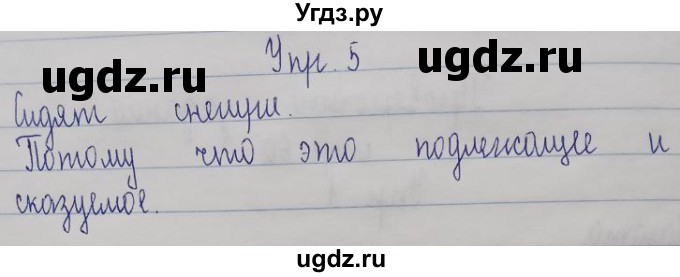 Угдз.ру
Упр. 5
ugdz.ru
ugdz.ru
Сидят снегири.
Потому что это подлежащее и
сказуемое.
ugdz.ru